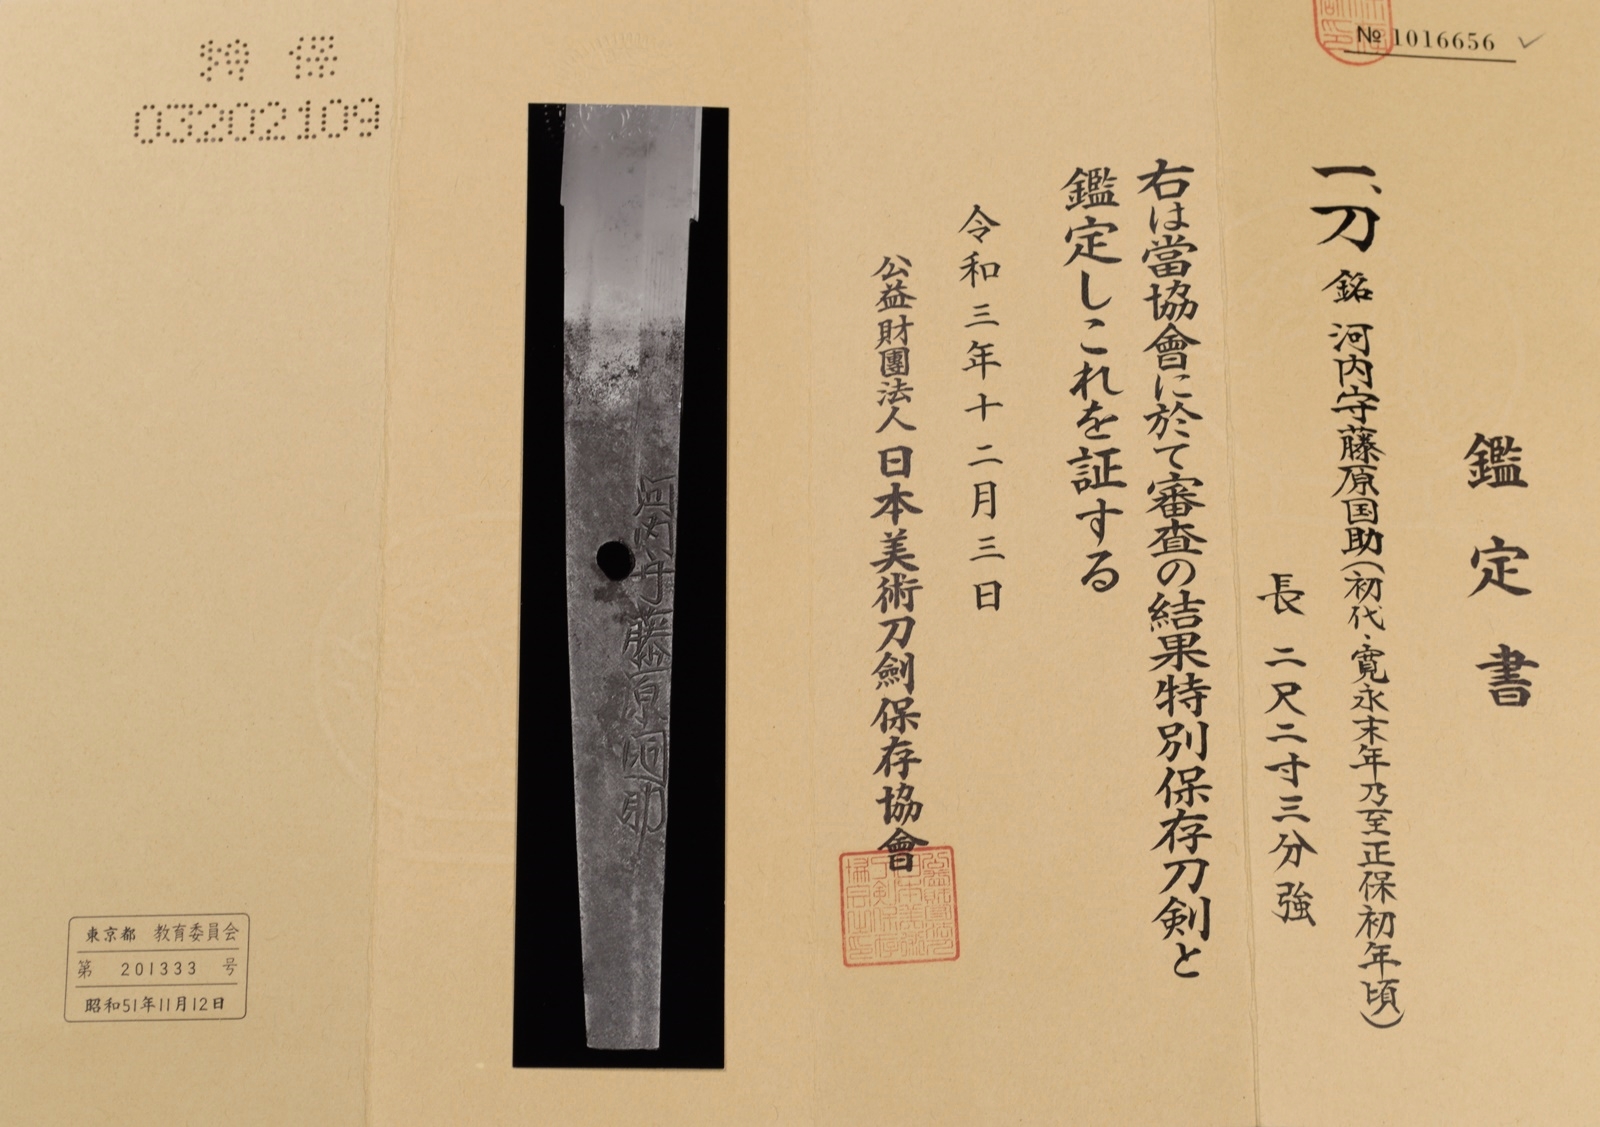 № 1016656
鑑定書
一、刀 銘 河内守藤原国助(初代・寛永末年乃至正保初年頃)
長 二尺二寸三分強
右は當協會に於て審査の結果特別保存刀剣と
鑑定しこれを証する
令和三年十二月三日
公益財團法人 日本美術刀劍保存協會
河内守藤原国助
特保
03202109
東京都 教育委員会
第 201333 号
昭和51年11月12日